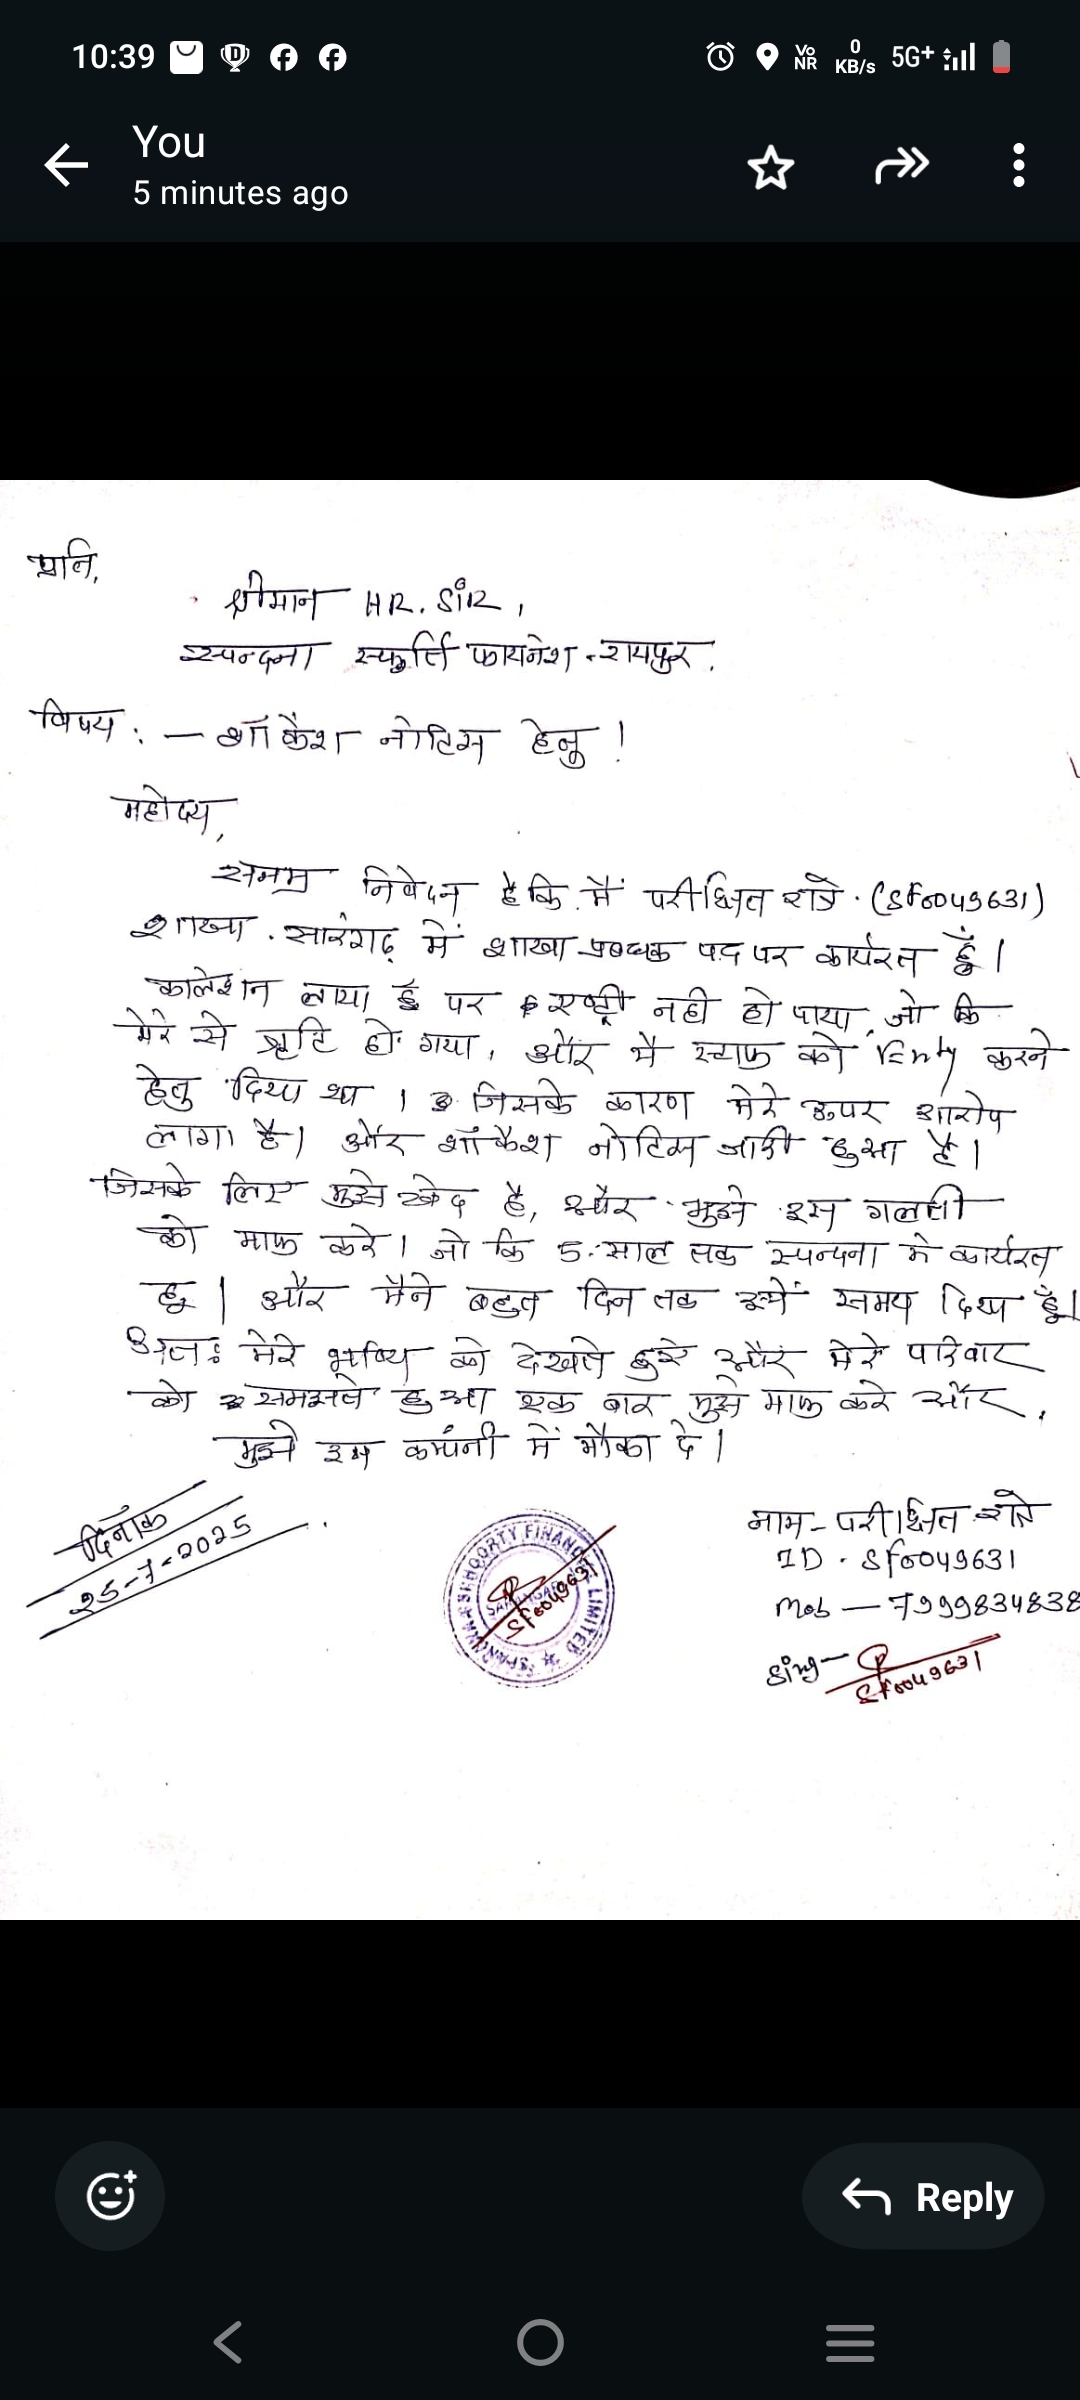 10:39
VoNR 0 KB/s 5G+
You
5 minutes ago
प्रति,
श्रीमान HR. SiR,
स्पन्दना स्फूर्ति फायनेश - रायपुर.
विषय : — शॉ कैश नोटिस हेतु !
महोदय,
सनम्र निवेदन है कि मैं परीक्षित रात्रे. (SF0049631)
शाखा. सारंगढ़ में शाखा प्रबन्धक पद पर कार्यरत हूँ।
कालेशन लाया हुँ पर एण्ट्री नही हो पाया, जो कि
मेरे से त्रृटि हो गया, और मै स्टाफ को Enty करने
हेतु दिया था । जिसके कारण मेरे ऊपर आरोप
लागा है। और शॉकैश नोटिस जारी हुआ है।
जिसके लिए मुझे खेद है, और मुझे इस गलती
को माफ करे। जो कि 5. साल तक स्पन्दना मे कार्यरत
हु | और मैने बहुत दिन तक समय दिया हूँ।
अतः मेरे भविष्य को देखते हुऐ और मेरे परिवार
को समझते हुआ एक बार मुझे माफ करे और,
मुझे इस कम्पंनी में मौका दे।
दिनाँक
25-7-2025
SPANDANA SPHOORTY FINANCIAL LIMITED
SF0049631
नाम - परीक्षित रात्रे
ID. Sf0049631
Mob — 7999834838
Sing — SF0049631
Reply